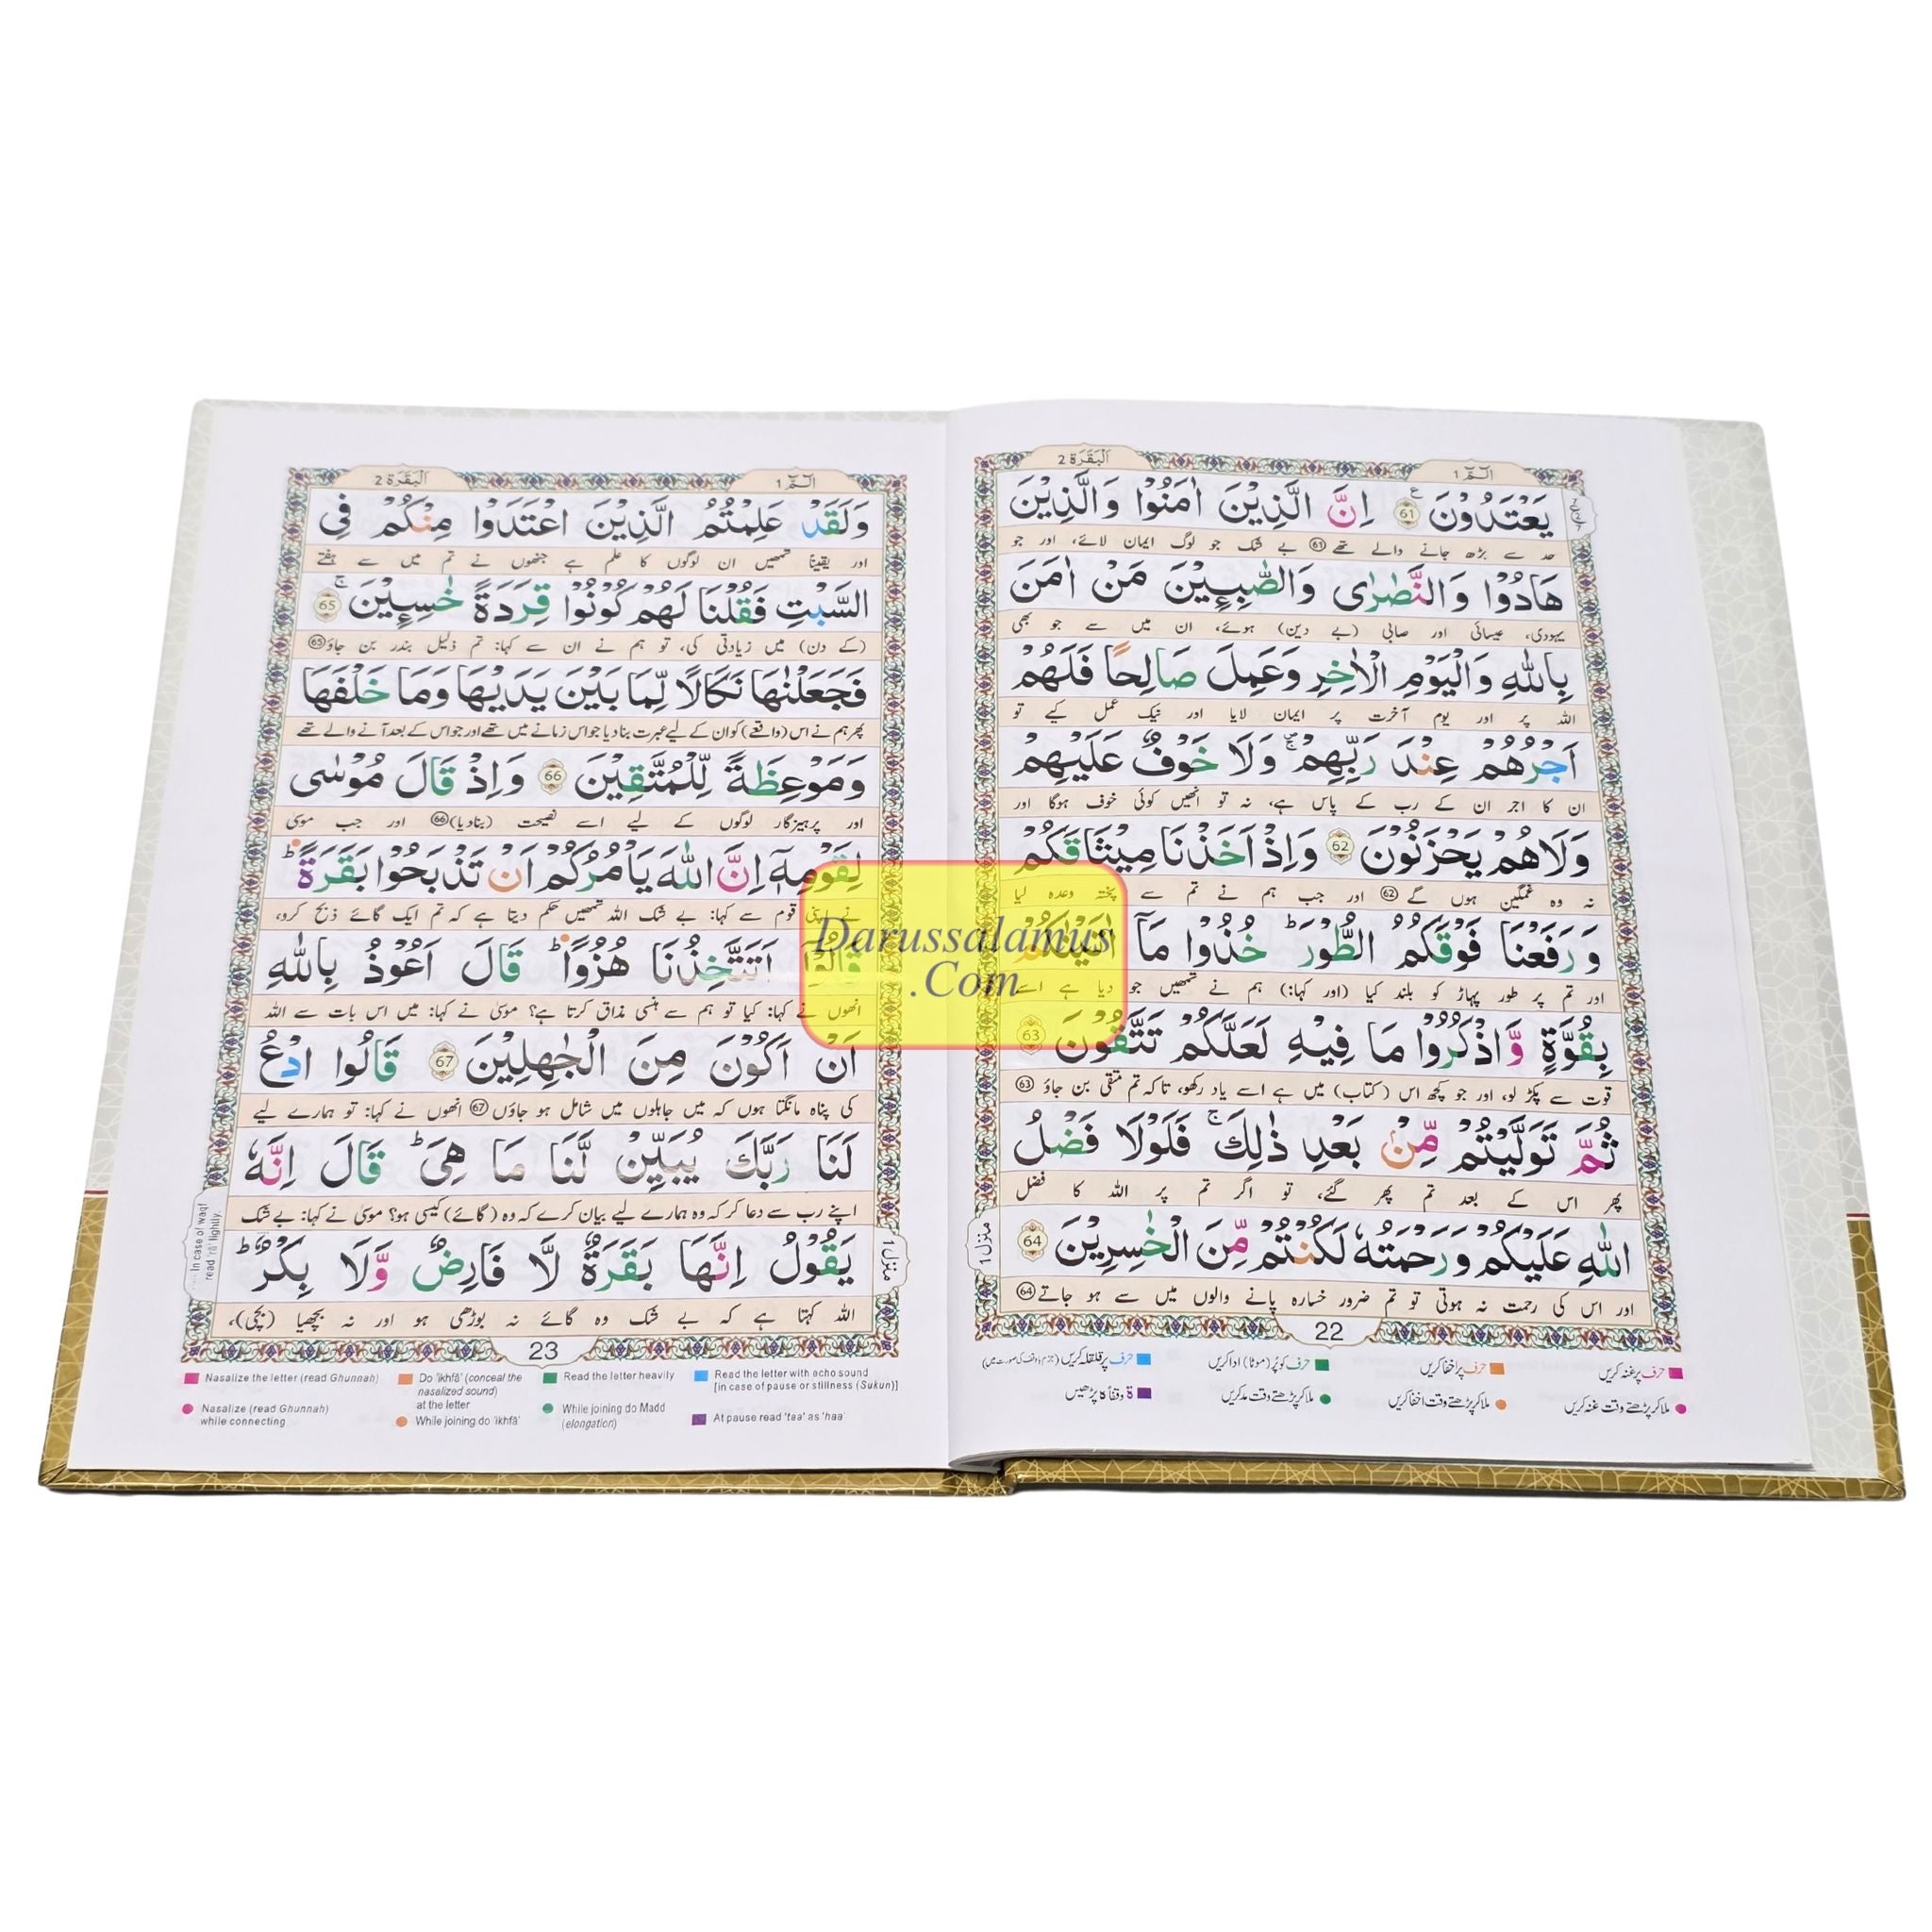 الٓـمّٓ 1
اَلْبَقَرَة 2
يَعْتَدُوْنَ 61 اِنَّ الَّذِيْنَ اٰمَنُوْا وَالَّذِيْنَ
حد سے بڑھ جانے والے تھے 61 بے شک جو لوگ ایمان لائے، اور جو
هَادُوْا وَالنَّصٰرٰى وَالصّٰبِـِٕيْنَ مَنْ اٰمَنَ
یہودی، عیسائی اور صابی (بے دین) ہوئے، ان میں سے جو بھی
بِاللّٰهِ وَالْيَوْمِ الْاٰخِرِ وَعَمِلَ صَالِحًا فَلَهُمْ
اللہ پر اور یوم آخرت پر ایمان لایا اور نیک عمل کیے تو
اَجْرُهُمْ عِنْدَ رَبِّهِمْ وَلَا خَوْفٌ عَلَيْهِمْ
ان کا اجر ان کے رب کے پاس ہے، نہ تو انھیں کوئی خوف ہوگا اور
وَلَاهُمْ يَحْزَنُوْنَ 62 وَاِذْ اَخَذْنَا مِيْثَاقَكُمْ
نہ وہ غمگین ہوں گے 62 اور جب ہم نے تم سے پختہ وعدہ لیا
وَرَفَعْنَا فَوْقَكُمُ الطُّوْرَ ؕ خُذُوْا مَآ اٰتَيْنٰكُمْ
اور تم پر طور پہاڑ کو بلند کیا (اور کہا:) ہم نے تمھیں جو دیا ہے اسے
بِقُوَّةٍ وَّاذْكُرُوْا مَا فِيْهِ لَعَلَّكُمْ تَتَّقُوْنَ 63
قوت سے پکڑ لو، اور جو کچھ اس (کتاب) میں ہے اسے یاد رکھو، تاکہ تم متقی بن جاؤ 63
ثُمَّ تَوَلَّيْتُمْ مِّنْۢ بَعْدِ ذٰلِكَ ۚ فَلَوْلَا فَضْلُ
پھر اس کے بعد تم پھر گئے، تو اگر تم پر اللہ کا فضل
اللّٰهِ عَلَيْكُمْ وَرَحْمَتُهٗ لَكُنْتُمْ مِّنَ الْخٰسِرِيْنَ 64
اور اس کی رحمت نہ ہوتی تو تم ضرور خسارہ پانے والوں میں سے ہو جاتے 64
منزل 1
22
حرف پر غنہ کریں
حرف پر اخفا کریں
حرف کو پُر (موٹا) ادا کریں
حرف پر قلقلہ کریں (جزم یا وقف کی صورت میں)
ملا کر پڑھتے وقت غنہ کریں
ملا کر پڑھتے وقت اخفا کریں
ملا کر پڑھتے وقت مد کریں
ۃ وقفاً ہ پڑھیں
الٓـمّٓ 1
اَلْبَقَرَة 2
وَلَقَدْ عَلِمْتُمُ الَّذِيْنَ اعْتَدَوْا مِنْكُمْ فِى
اور یقیناً تمھیں ان لوگوں کا علم ہے جنھوں نے تم میں سے ہفتے
السَّبْتِ فَقُلْنَا لَهُمْ كُوْنُوْا قِرَدَةً خٰسِـِٕيْنَ ۚ 65
(کے دن) میں زیادتی کی، تو ہم نے ان سے کہا: تم ذلیل بندر بن جاؤ 65
فَجَعَلْنٰهَا نَكَالًا لِّمَا بَيْنَ يَدَيْهَا وَمَا خَلْفَهَا
پھر ہم نے اس (واقعے) کو ان کے لیے عبرت بنا دیا جو اس زمانے میں تھے اور جو اس کے بعد آنے والے تھے
وَمَوْعِظَةً لِّلْمُتَّقِيْنَ 66 وَاِذْ قَالَ مُوْسٰى
اور پرہیزگار لوگوں کے لیے اسے نصیحت (بنا دیا) 66 اور جب موسیٰ
لِقَوْمِهٖٓ اِنَّ اللّٰهَ يَاْمُرُكُمْ اَنْ تَذْبَحُوْا بَقَرَةً ؕ
نے اپنی قوم سے کہا: بے شک اللہ تمھیں حکم دیتا ہے کہ تم ایک گائے ذبح کرو،
قَالُوْٓا اَتَتَّخِذُنَا هُزُوًا ؕ قَالَ اَعُوْذُ بِاللّٰهِ
انھوں نے کہا: کیا تو ہم سے ہنسی مذاق کرتا ہے؟ موسیٰ نے کہا: میں اس بات سے اللہ
اَنْ اَكُوْنَ مِنَ الْجٰهِلِيْنَ 67 قَالُوا ادْعُ
کی پناہ مانگتا ہوں کہ میں جاہلوں میں شامل ہو جاؤں 67 انھوں نے کہا: تو ہمارے لیے
لَنَا رَبَّكَ يُبَيِّنْ لَّنَا مَا هِىَ ؕ قَالَ اِنَّهٗ
اپنے رب سے دعا کر کہ وہ ہمارے لیے بیان کرے کہ وہ (گائے) کیسی ہو؟ موسیٰ نے کہا: بے شک
يَقُوْلُ اِنَّهَا بَقَرَةٌ لَّا فَارِضٌ وَّلَا بِكْرٌ ؕ
اللہ کہتا ہے کہ بے شک وہ گائے نہ بوڑھی ہو اور نہ بچھیا (بچی)،
منزل 1
In case of waqf
read 'rā' lightly.
23
Nasalize the letter (read Ghunnah)
Do 'ikhfā' (conceal the
nasalized sound)
at the letter
Read the letter heavily
Read the letter with echo sound
[in case of pause or stillness (Sukun)]
Nasalize (read Ghunnah)
while connecting
While joining do 'ikhfā'
While joining do Madd
(elongation)
At pause read 'taa' as 'haa'
Darussalamus
.Com